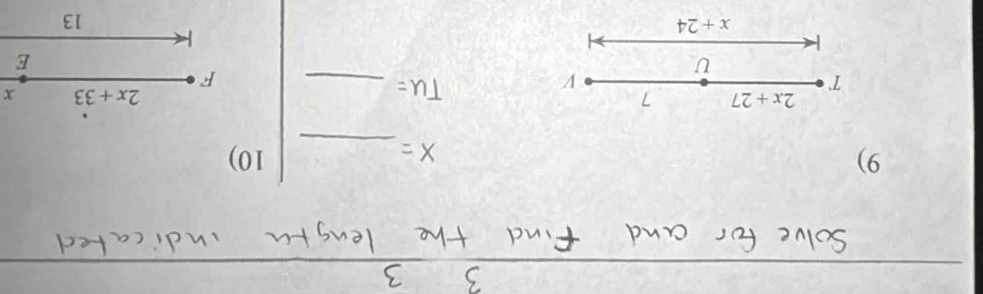 3 3
Solve for and Find the length indicated
9) x = 10)
2x + 27 7 2x + 33 x
T U V Tu = F E
x + 24 13